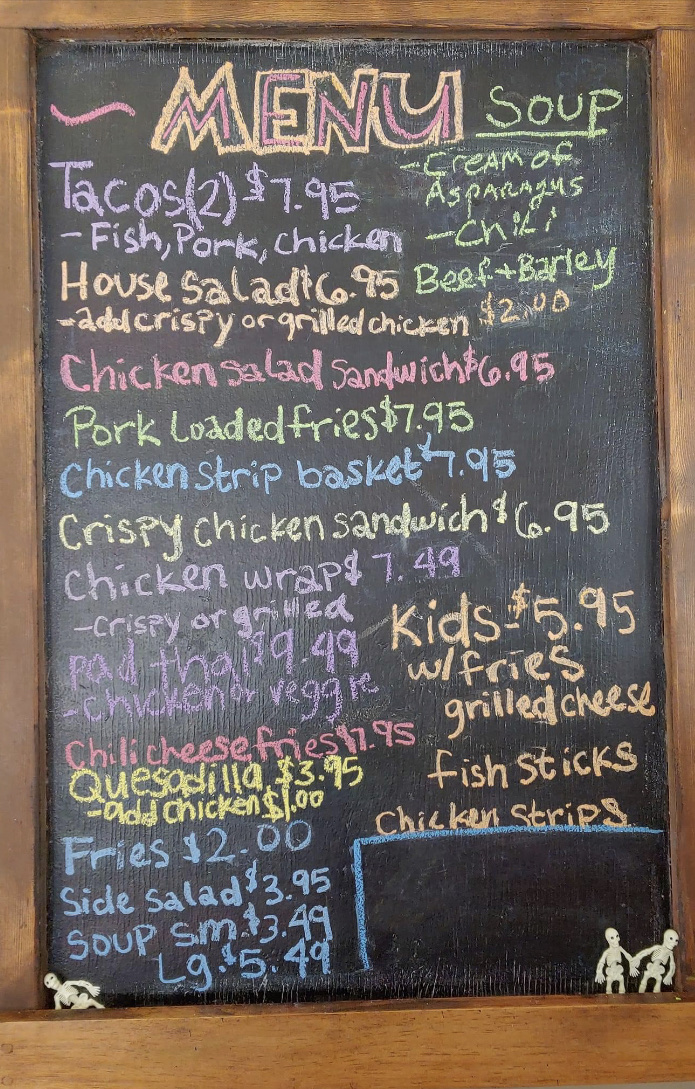 MENU
Tacos(2) $7.95
-Fish, Pork, chicken
House Salad $6.95
-add crispy or grilled chicken $2.00
Chicken salad Sandwich $6.95
Pork Loaded fries $7.95
Chicken Strip basket $7.95
Crispy Chicken sandwich $6.95
Chicken wrap $7.49
-crispy or grilled
pad thai $9.49
-chicken or veggie
Chili cheese fries $7.95
Quesadilla $3.95
-add chicken $1.00
Fries $2.00
Side Salad $3.95
SOUP sm. $3.49
Lg. $5.49
SOUP
-CREAM OF
ASPARAGUS
-Chili
Beef + Barley
Kids - $5.95
w/ fries
grilled cheese
fish sticks
Chicken strips